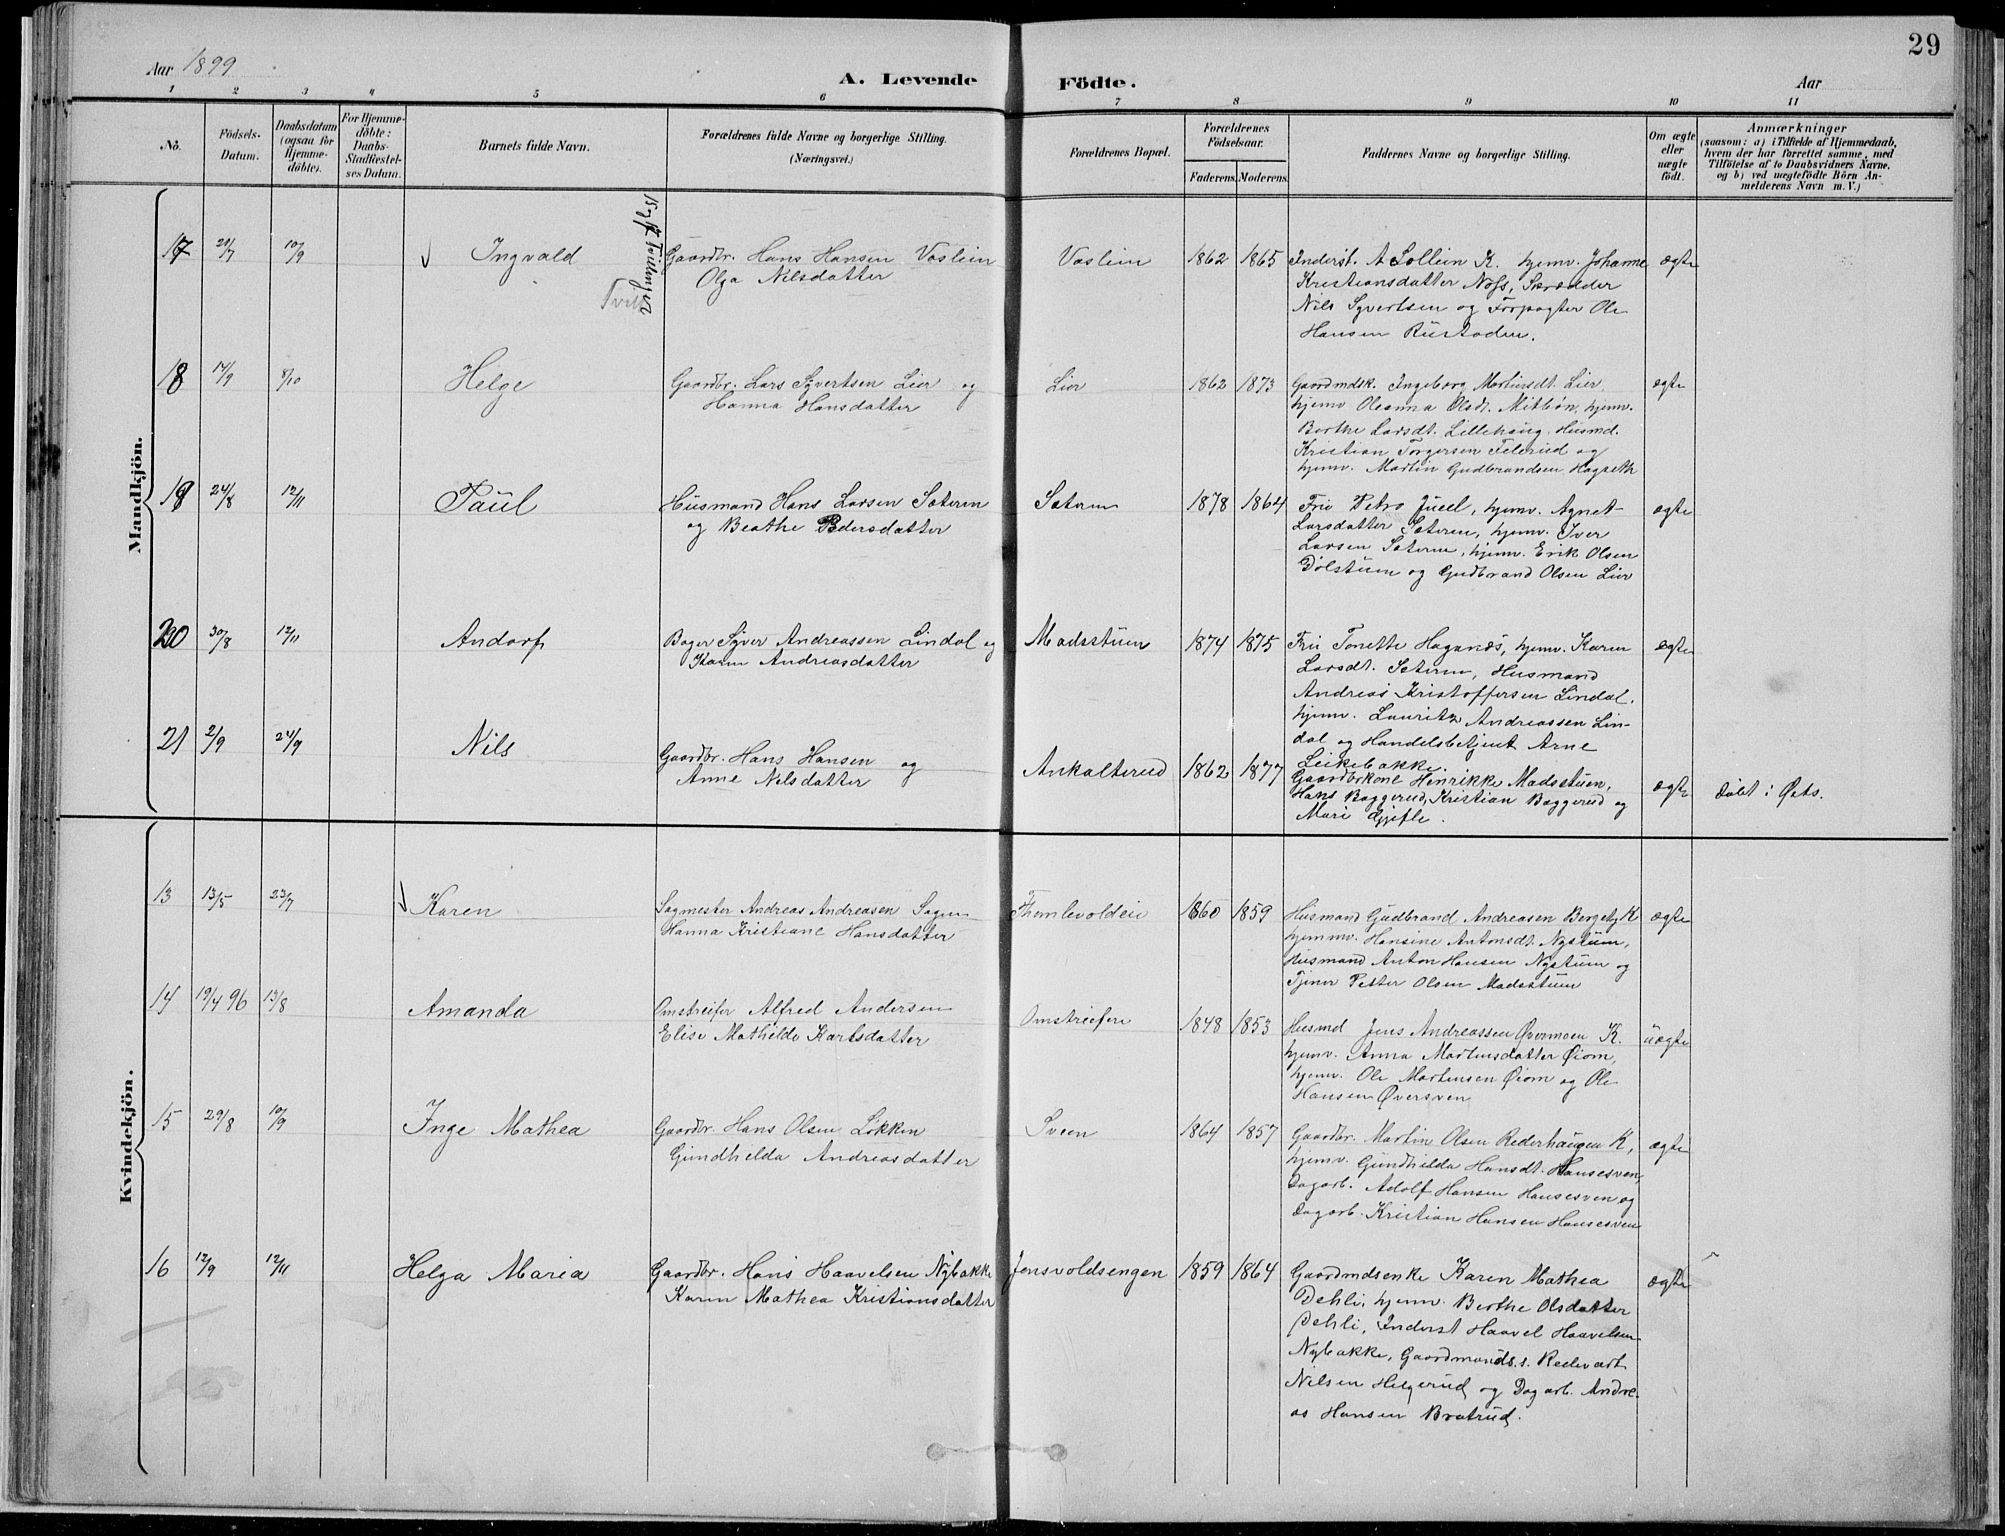 29
Aar 1899
A. Levende Födte.
Aar
1 2 3 4 5 6 7 8 9 10 11
No.
Födsels-Datum.
Daabsdatum (ogsaa for Hjemme-döbte).
For Hjemme-döbte: Daabs-Stadfæstel-ses Datum.
Barnets fulde Navn.
Forældrenes fulde Navne og borgerlige Stilling.
(Næringsvei.)
Forældrenes Bopæl.
Forældrenes Födselsaar.
Faderens. Moderens.
Faddernes Navne og borgerlige Stilling.
Om ægte eller uægte födt.
Anmærkninger
(saasom: a) i Tilfælde af Hjemmedaab,
hvem der har forrettet samme, med
Tilföielse af to Daabsvidners Navne,
og b) ved uægtefödte Börn An-
melderens Navn m. V.)
Mandkjön.
17 10/9 Ingvald
Tvillinger
Gaardbr. Hans Hansen Voslien
Olga Nilsdatter
Voslien 1862 1865
Inderst. A Sollien K. hjemv. Johanne
Kristiansdatter Næss, Skrædder
Nils Syvertsen og Forpagter Ole
Hansen Rustaden.
ægte
18 17/9 8/10 Helge
Gaardbr. Lars Syvertsen Lier og
Hanna Hansdatter
Lier 1862 1873
Gaardmdsk. Ingeborg Mortensdt. Lier,
hjemv Oleanna Olsdt. Mitbøn, hjemv.
Berthe Larsdt. Lillehaug. Husmd.
Kristian Torgersen Felerud og
hjemv. Martin Gudbrandsen Hagseth
ægte
24/8 12/11 Paul
Husmand Hans Larsen Sæteren
og Beathe Pedersdatter
Sæteren 1878 1864
Fru Petra Juell, hjemv. Agnet
Larsdatter Sæteren, hjemv. Iver
Larsen Sæteren, hjemv. Erik Olsen
Dølstuen og Gudbrand Olsen Lier
ægte
20 30/8 12/11 Andorf
Bager Syver Andreassen Lindal og
Karen Andreasdatter
Madsstuen 1874 1875
Fru Tonette Haganæs, hjemv. Karen
Larsdt. Sæteren, Husmand
Andreas Kristoffersen Lindal.
hjemv. Lauritz Andreassen Lin-
dal og Handelsbetjent Arne
Leikebakke.
ægte
21 2/9 24/9 Nils
Gaardbr. Hans Hansen og
Anne Nilsdatter
Ankalterud 1862 1877
Gaardbrkone Henrikke Madsstuen,
Hans Baggerud, Kristian Baggerud og
Mari Gjefle.
ægte
døbt i Øets.
Kvindekjön.
13 13/5 23/7 Karen
Sagmester Andreas Andreasen Sagen
Hanna Kristiane Hansdatter
Thonlevoldeie 1860 1859
Husmand Gudbrand Andreasen Bergeby K
hjemmv. Hansine Antonsdt. Nystuen,
Husmand Anton Hansen Nystuen og
Tjener Petter Olsen Madsstuen
ægte
14 19/4 96 13/8 Amanda
Omstreifer Alfred Andersen
Elise Mathilde Karlsdatter
Omstreifere 1848 1853
Husmd Jens Andreassen Øvermoen K.
hjemv. Anna Martinsdatter Øiom,
hjemv. Ole Mortensen Øiom og Ole
Hansen Øversven
uægte
15 29/8 10/9 Inge Mathea
Gaardbr. Hans Olsen Løkken
Gundhelda Andreasdatter
Sveen 1864 1857
Gaardbr. Martin Olsen Rederhaugen K,
hjemv. Gundhilda Hansdt. Hansesven,
Dagarb. Adolf Hansen Hansesven og
Dagarb. Kristian Hansen Hansesven
ægte
16 12/9 12/11 Helga Maria
Gaardbr. Hans Haavelsen Nybakke
Karen Mathea Kristiansdatter
Jonsvoldsengen 1859 1864
Gaardmdsenke Karen Mathea
Dehli, hjemv. Berthe Olsdatter
Dehli, Inderst Haavel Haavelsen
Nybakke, Gaardmands.s. Redevart
Nilsen Helgerud og Dagarb. Andre-
as Hansen Bratrud.
ægte